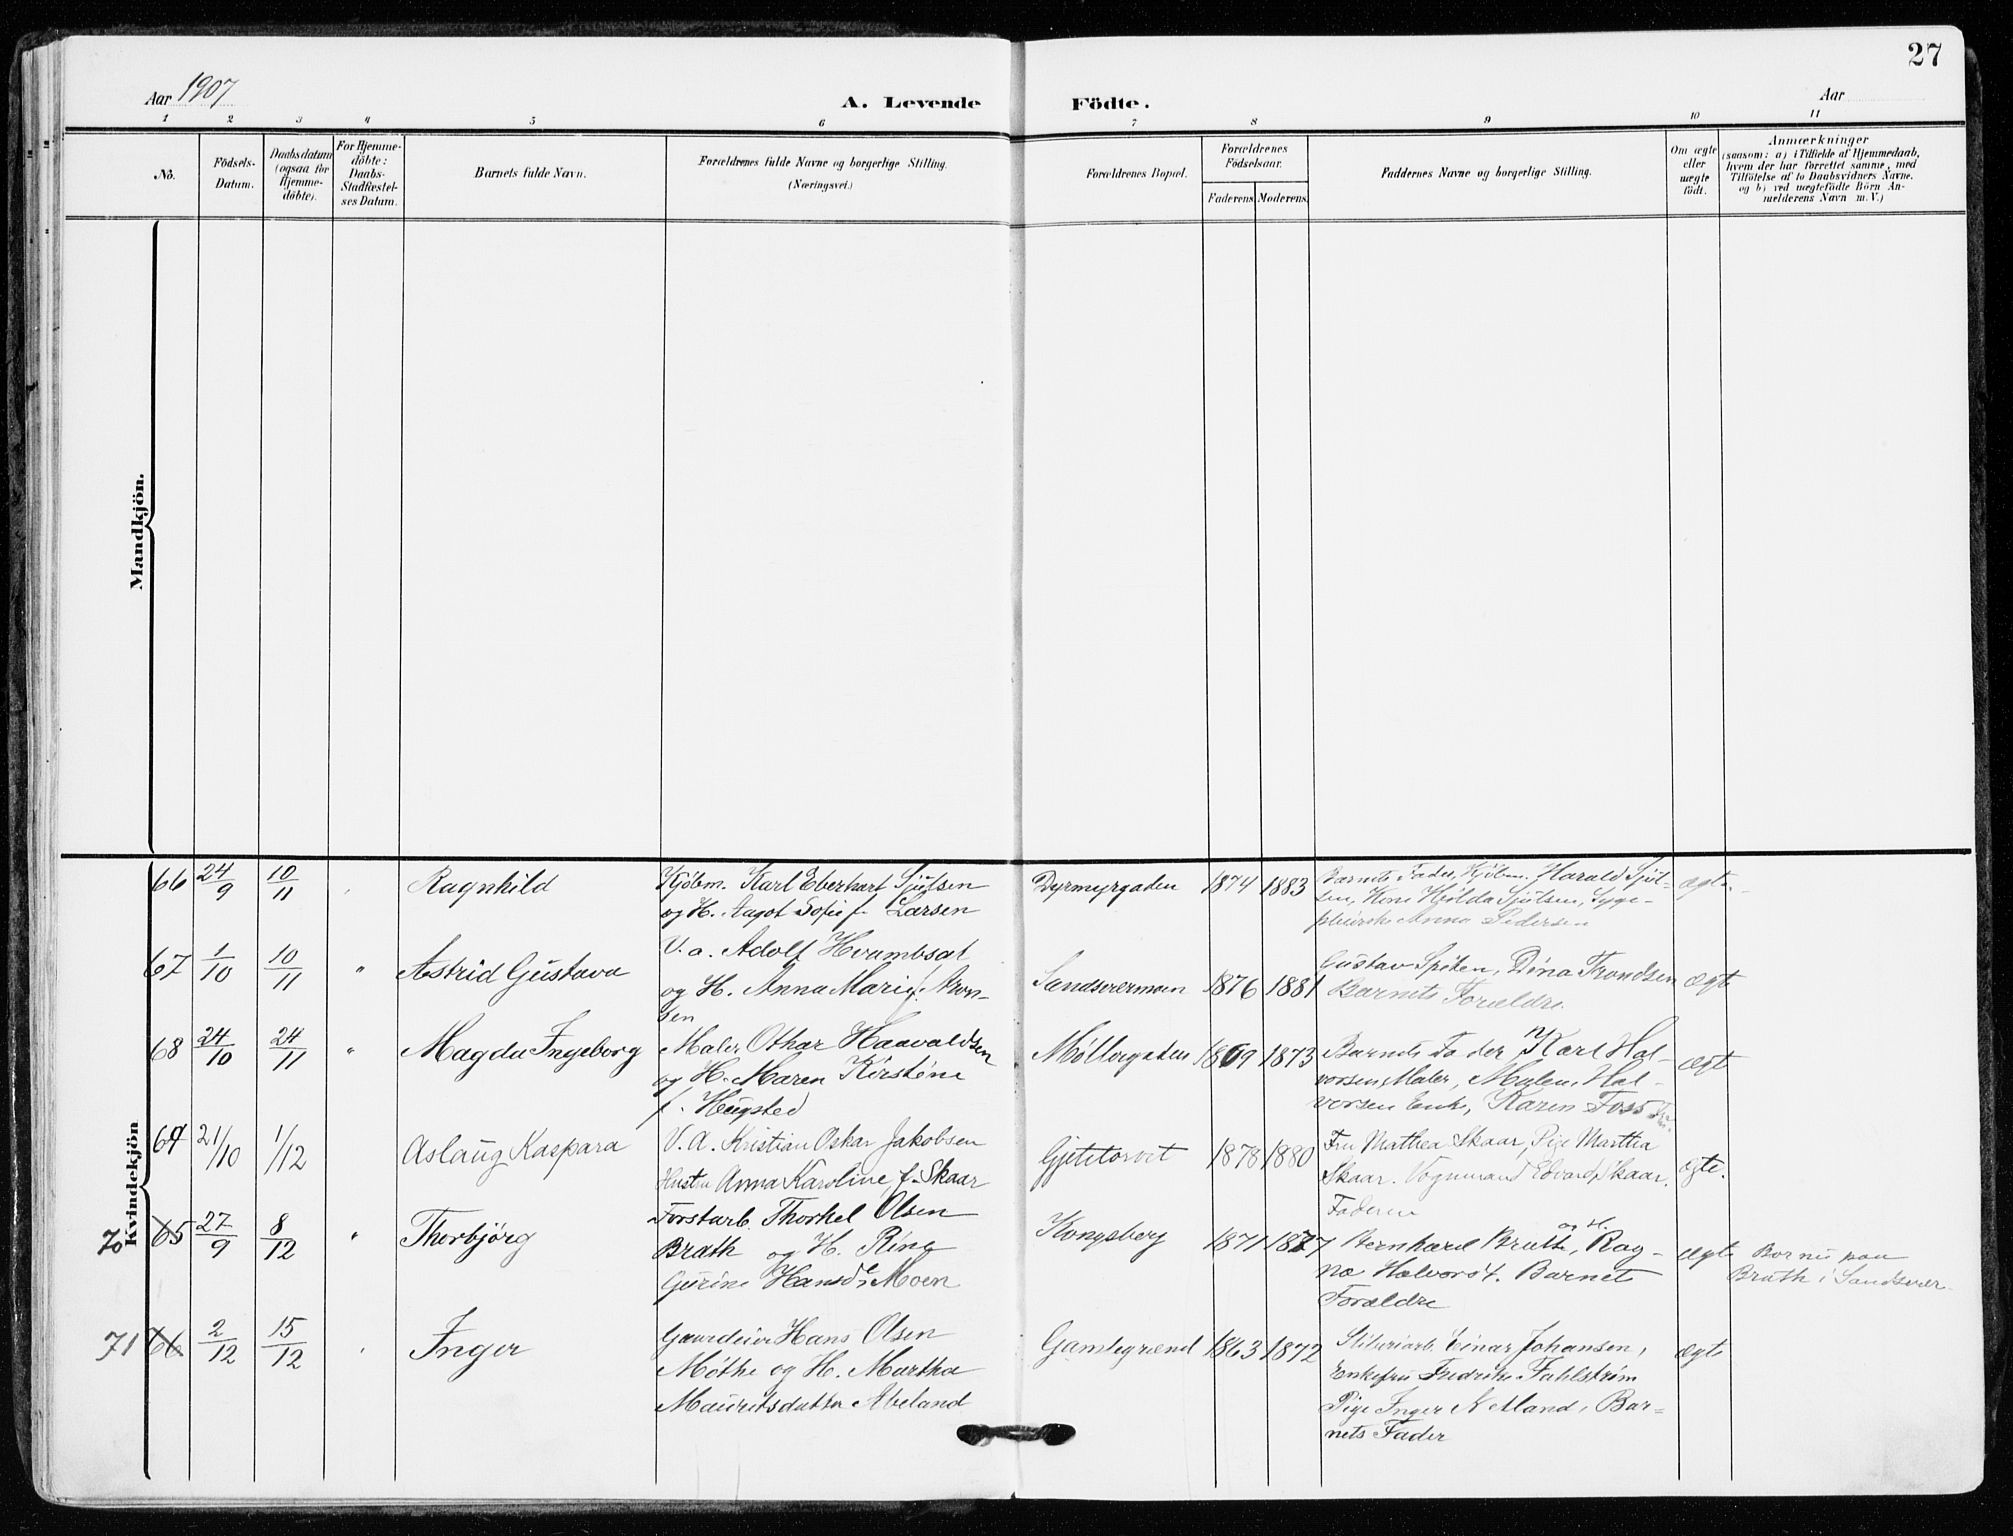 27
Aar 1907
A. Levende Födte.
Aar
1 2 3 4 5 6 7 8 9 10 11
No.
Födsels-
Datum.
Daabsdatum
(ogsaa for
Hjemme-
döbte).
For Hjemme-
döbte:
Daabs-
Stadfæstel-
ses Datum.
Barnets fulde Navn.
Forældrenes fulde Navne og borgerlige Stilling.
(Næringsvei.)
Forældrenes Bopæl.
Forældrenes
Födselsaar.
Faderens Moderens
Faddernes Navne og borgerlige Stilling.
Om ægte
eller
uægte
födt.
Anmærkninger
(saasom: a) i Tilfælde af Hjemmedaab,
hvem der har forrettet samme, med
Tilföielse af to Daabsvidners Navne.
og b) ved uægtefödte Börn An-
melderens Navn m. V.)
Mandkjön.
Kvindekjön
66 24/9 10/11 Ragnhild
Kjøbm. Karl Eberhart Sjulsen
og H. Aagot Sofie f. Larsen
Dyrmyrgaden 1874 1883
Barnets Fader, Kjøbm. Harald Sjul-
sen, Kone Hilda Sjulsen, Syge-
pleierske Anna Pedersen
ægte
67 1/10 10/11 " Astrid Gustava
V. a. Adolf
og H. Anna Marie
sen
Sandsværmoen 1876 1881
Gustav Spiten, Dina Trondsen
Barnets Forældre.
ægt
68 24/10 24/11 " Magda Ingeborg
Maler Othar Haavaldsen
og H. Maren Kirstine
f. Haugsted
Møllergaden 1869 1873
Barnets Fader, Karl Hal-
vorsen, Maler, Malen. Hal-
vorsen Enke, Karen Foss
ægt
69 21/10 1/12 Aslaug Kaspara
V. A. Kristian Oskar Jakobsen
Hustru Anna Karoline f. Skaar
Gjetetorvet 1878 1880
Fru Mathea Skaar, Pige Martha
Skaar. Vognmand Edvard Skaar.
Faderen
ægte.
70 65 27/9 8/12 " Thorbjørg
Forstarb. Thorkel Olsen
Brath og H. Ring
Gurine Hansd. Moen
Kongsberg 1871 1877
Bernhard Bruth, og H. Rag-
na Halvorsd. Barnets
Forældre
ægte
Born paa
Bruth i Sandsvær
71 66 2/12 15/12 Inger
Gaardeier Hans Olsen
Møthe og H. Martha
Mauritsdatter Abeland
Gamlegrænd 1863 1872
Einar Johansen,
Enkefru Fredrike Fahlstrøm
Pige Inger Ketland, Bar-
nets Fader
ægte